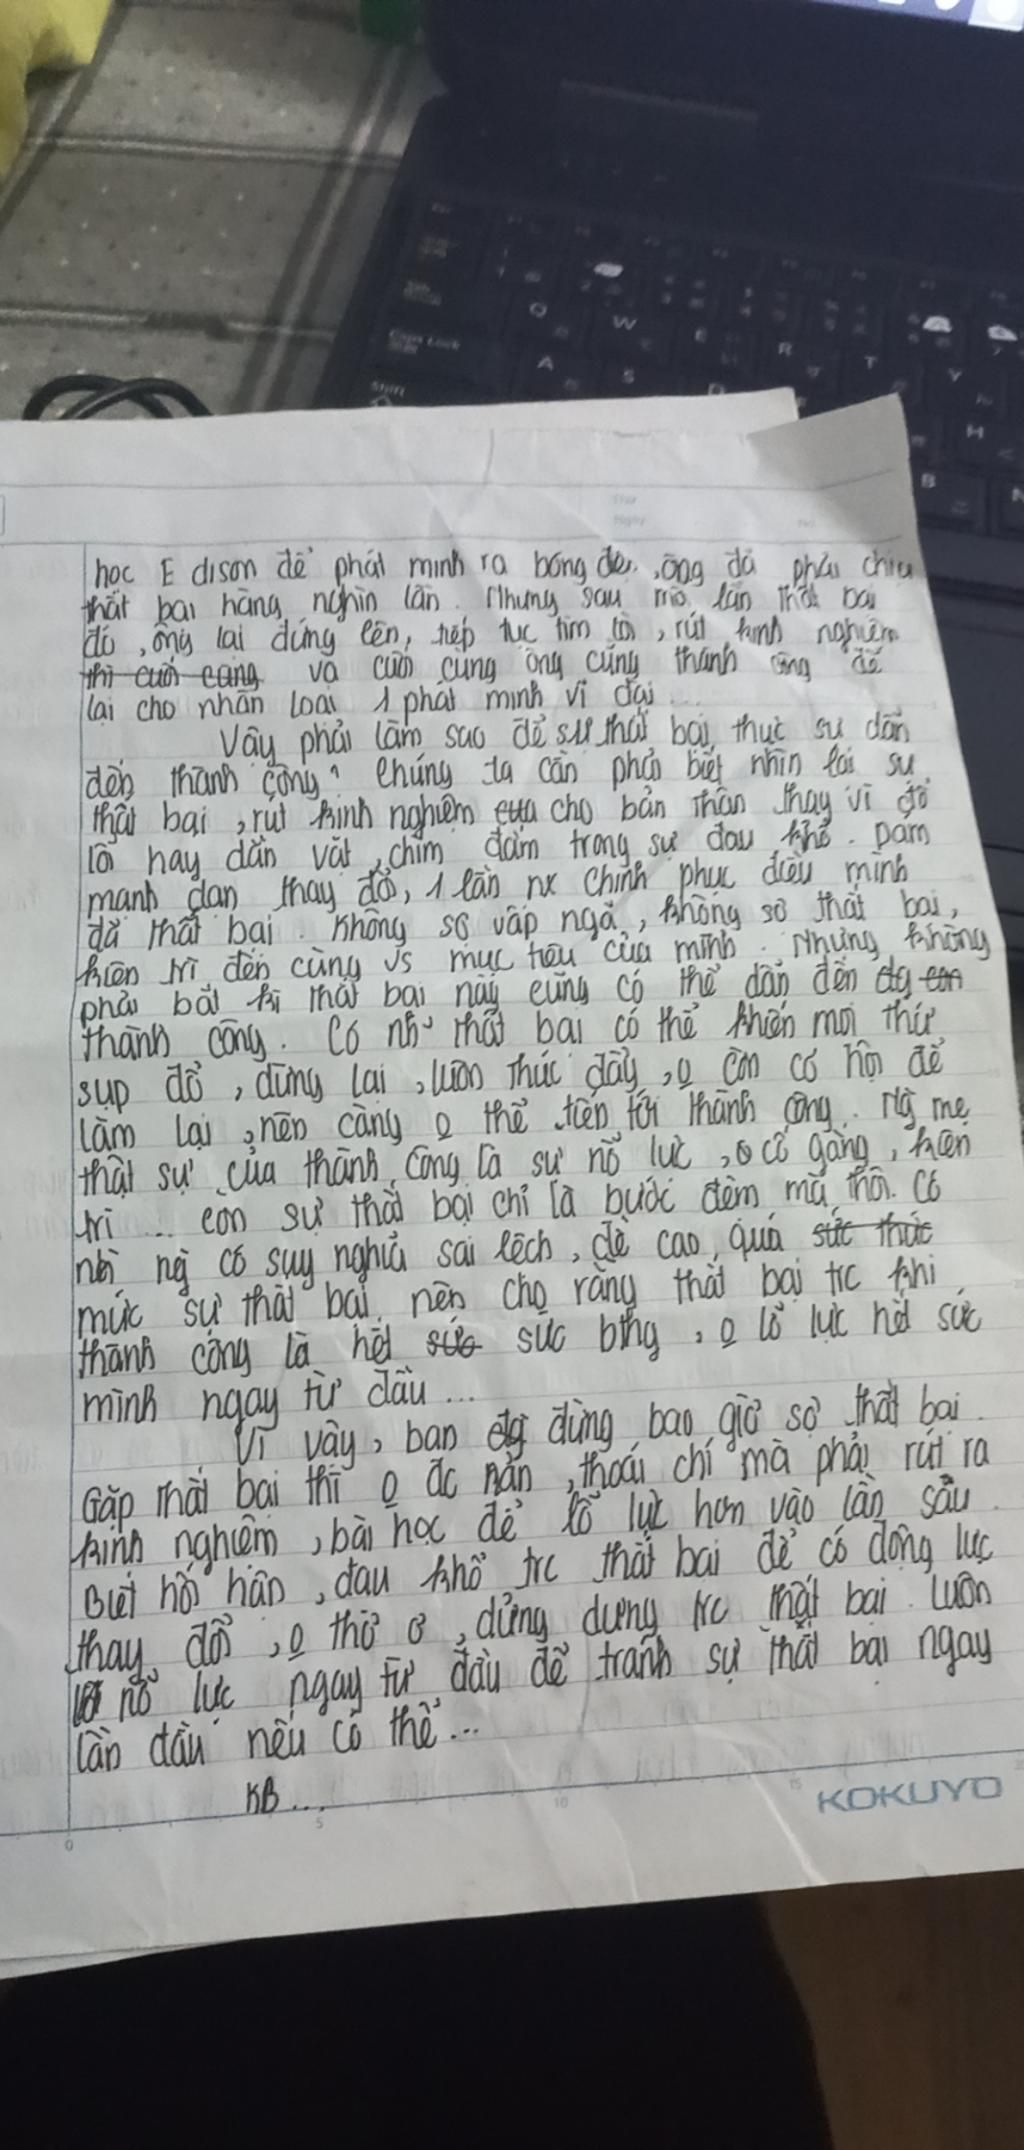 học Edison để phát minh ra bóng đèn, ông đã phải chịu
thất bại hàng nghìn lần. Nhưng sau mỗi lần thất bại
đó, ông lại đứng lên, tiếp tục tìm tòi, rút kinh nghiệm
thì cuối cùng và cuối cùng ông cũng thành công để
lại cho nhân loại 1 phát minh vĩ đại...
Vậy phải làm sao để sự thất bại thực sự dẫn
đến thành công? Chúng ta cần phải biết nhìn lại sự
thất bại, rút kinh nghiệm của cho bản thân thay vì đổ
lỗi hay dằn vặt, chìm đắm trong sự đau khổ. Dám
mạnh dạn thay đổi, 1 lần nx chinh phục điều mình
đã thất bại. Không sợ vấp ngã, không sợ thất bại,
kiên trì đến cùng vs mục tiêu của mình. Nhưng không
phải bất kì thất bại này cũng có thể dẫn đến
thành công. Có nh~ thất bại có thể khiến mọi thứ
sụp đổ, dừng lại, luôn thúc đẩy, o còn cơ hội để
làm lại, nên càng o thể tiến tới thành công. Ng mẹ
thật sự của thành công là sự nỗ lực, cố gắng, kiên
trì ... còn sự thất bại chỉ là bước đệm mà thôi. Có
nh~ ng có suy nghĩ sai lệch, đề cao quá sức thức
mức sự thất bại nên cho rằng thất bại trc khi
thành công là hết sức sức bthg, o lỗ lực hết sức
mình ngay từ đầu...
Vì vậy, bạn đg đừng bao giờ sợ thất bại.
Gặp thất bại thì o đc nản, thoái chí mà phải rút ra
kinh nghiệm, bài học để lỗ lực hơn vào lần sau.
Biết hối hận, đau khổ trc thất bại để có động lực
thay đổi, o thờ ơ, dửng dưng trc thất bại. Luôn
nỗ lực ngay từ đầu để tránh sự thất bại ngay
lần đầu nếu có thể...
KB...
KOKUYO